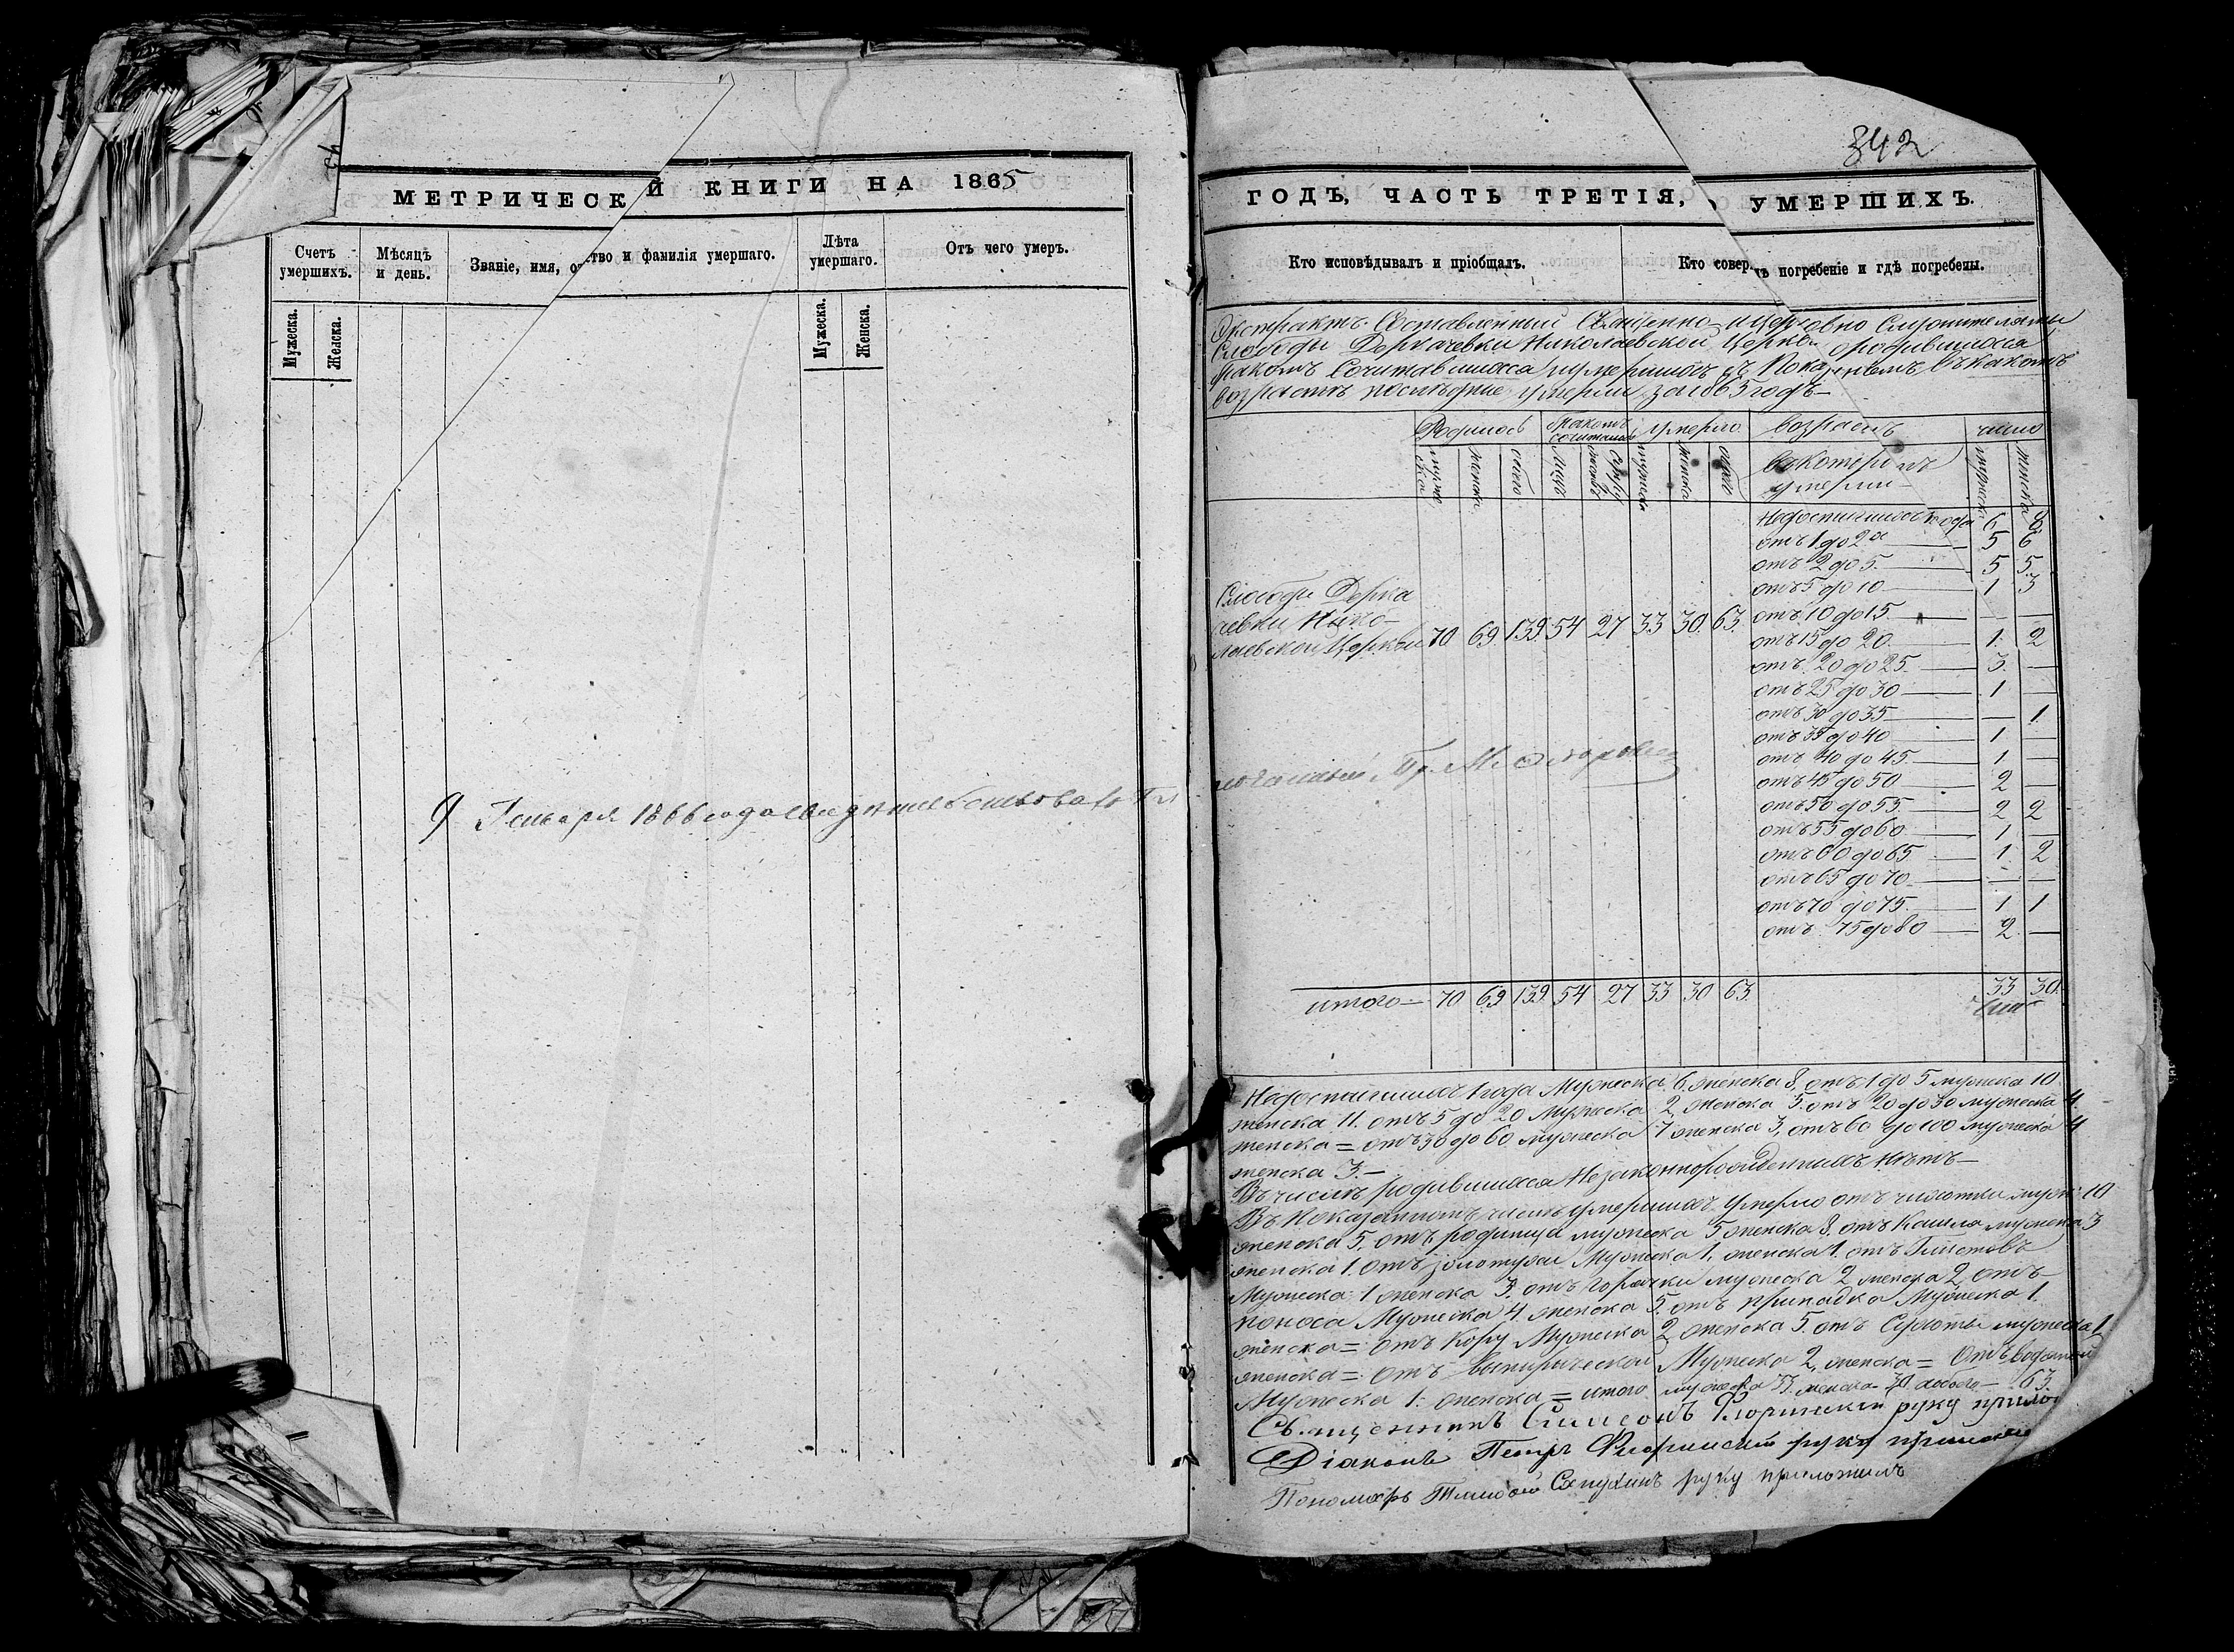 МЕТРИЧЕСКОЙ КНИГИ НА 1865
Счетъ умершихъ.
Мѣсяцъ и день.
Званіе, имя, отчество и фамилія умершаго.
Лѣта умершаго.
Отъ чего умеръ.
Мужеска.
Женска.
Мужеска.
Женска.
9 Генваря 1866 года
342
ГОДЪ, ЧАСТЬ ТРЕТІЯ, УМЕРШИХЪ.
Кто исповѣдывалъ и пріобщалъ.
Кто совер. ъ погребеніе и гдѣ погребены.
Экстрактъ Составленный Священно-церковно Служителями
Слободы Деркачевки Николаевской Церкви ородившихся
бракомъ Сочитавшихся умершихъ съ Показаніемъ въ какомъ
возрастѣ послѣдніе умерли за 1865 годъ
Родилось
бракомъ сочиталось
умерло
возрастъ
число
мужеска
женска
обоего
лицъ
мужеска
женска
обоего
въ которомъ умерли
мужеска
женска
Недостигшихъ года 6 8
отъ 1 до 2х 5 6
отъ 2 до 5 5 5
отъ 5 до 10 1 3
отъ 10 до 15 — —
отъ 15 до 20 1 2
отъ 20 до 25 3 —
отъ 25 до 30 1 —
отъ 30 до 35 — 1
отъ 35 до 40 1 —
отъ 40 до 45 1 —
отъ 45 до 50 2 —
отъ 50 до 55 2 2
отъ 55 до 60 1 —
отъ 60 до 65 1 2
отъ 65 до 70 — —
отъ 70 до 75 1 1
отъ 75 до 80 2 —
Слободы Дерка
чевки Нико-
лаевской Церкви 70 69 139 54 27 33 30 63
итого 70 69 139 54 27 33 30 63 33 30
Недостигшихъ 1 года Мужеска 6 женска 8, отъ 1 до 5 мужеска 10
женска 11. отъ 5 до 20 мужеска 2, женска 5. отъ 20 до 30 мужеска 4.
женска = отъ 30 до 60 мужеска 7 женска 3, отъ 60 до 100 мужеска 4
женска 3.
Въ числѣ родившихся Незаконнорожденныхъ нѣтъ
Въ Показанномъ числѣ умершихъ умерло отъ чахотки муж: 10
женска 5. отъ родимца мужеска 5 женска 8. отъ Кашля мужеска 3
женска 1. отъ золотухи Мужеска 1, женска 1. отъ
Мужеска 1 женска 3. отъ горячки мужеска 2 женска 2, отъ
поноса Мужеска 4. женска 5. отъ припадка Мужеска 1.
женска = отъ Кору Мужеска 2 женска 5. отъ Сухоты мужеска 1
женска = отъ Мужеска 2, женска = отъ водяной
Мужеска 1. женска = итого мужеска 33 женска 30 обоего 63.
Священникъ Симеонъ Флоринскій руку прило
Діаконъ Петръ Флоринскій руку приложи
Пономарь руку приложилъ